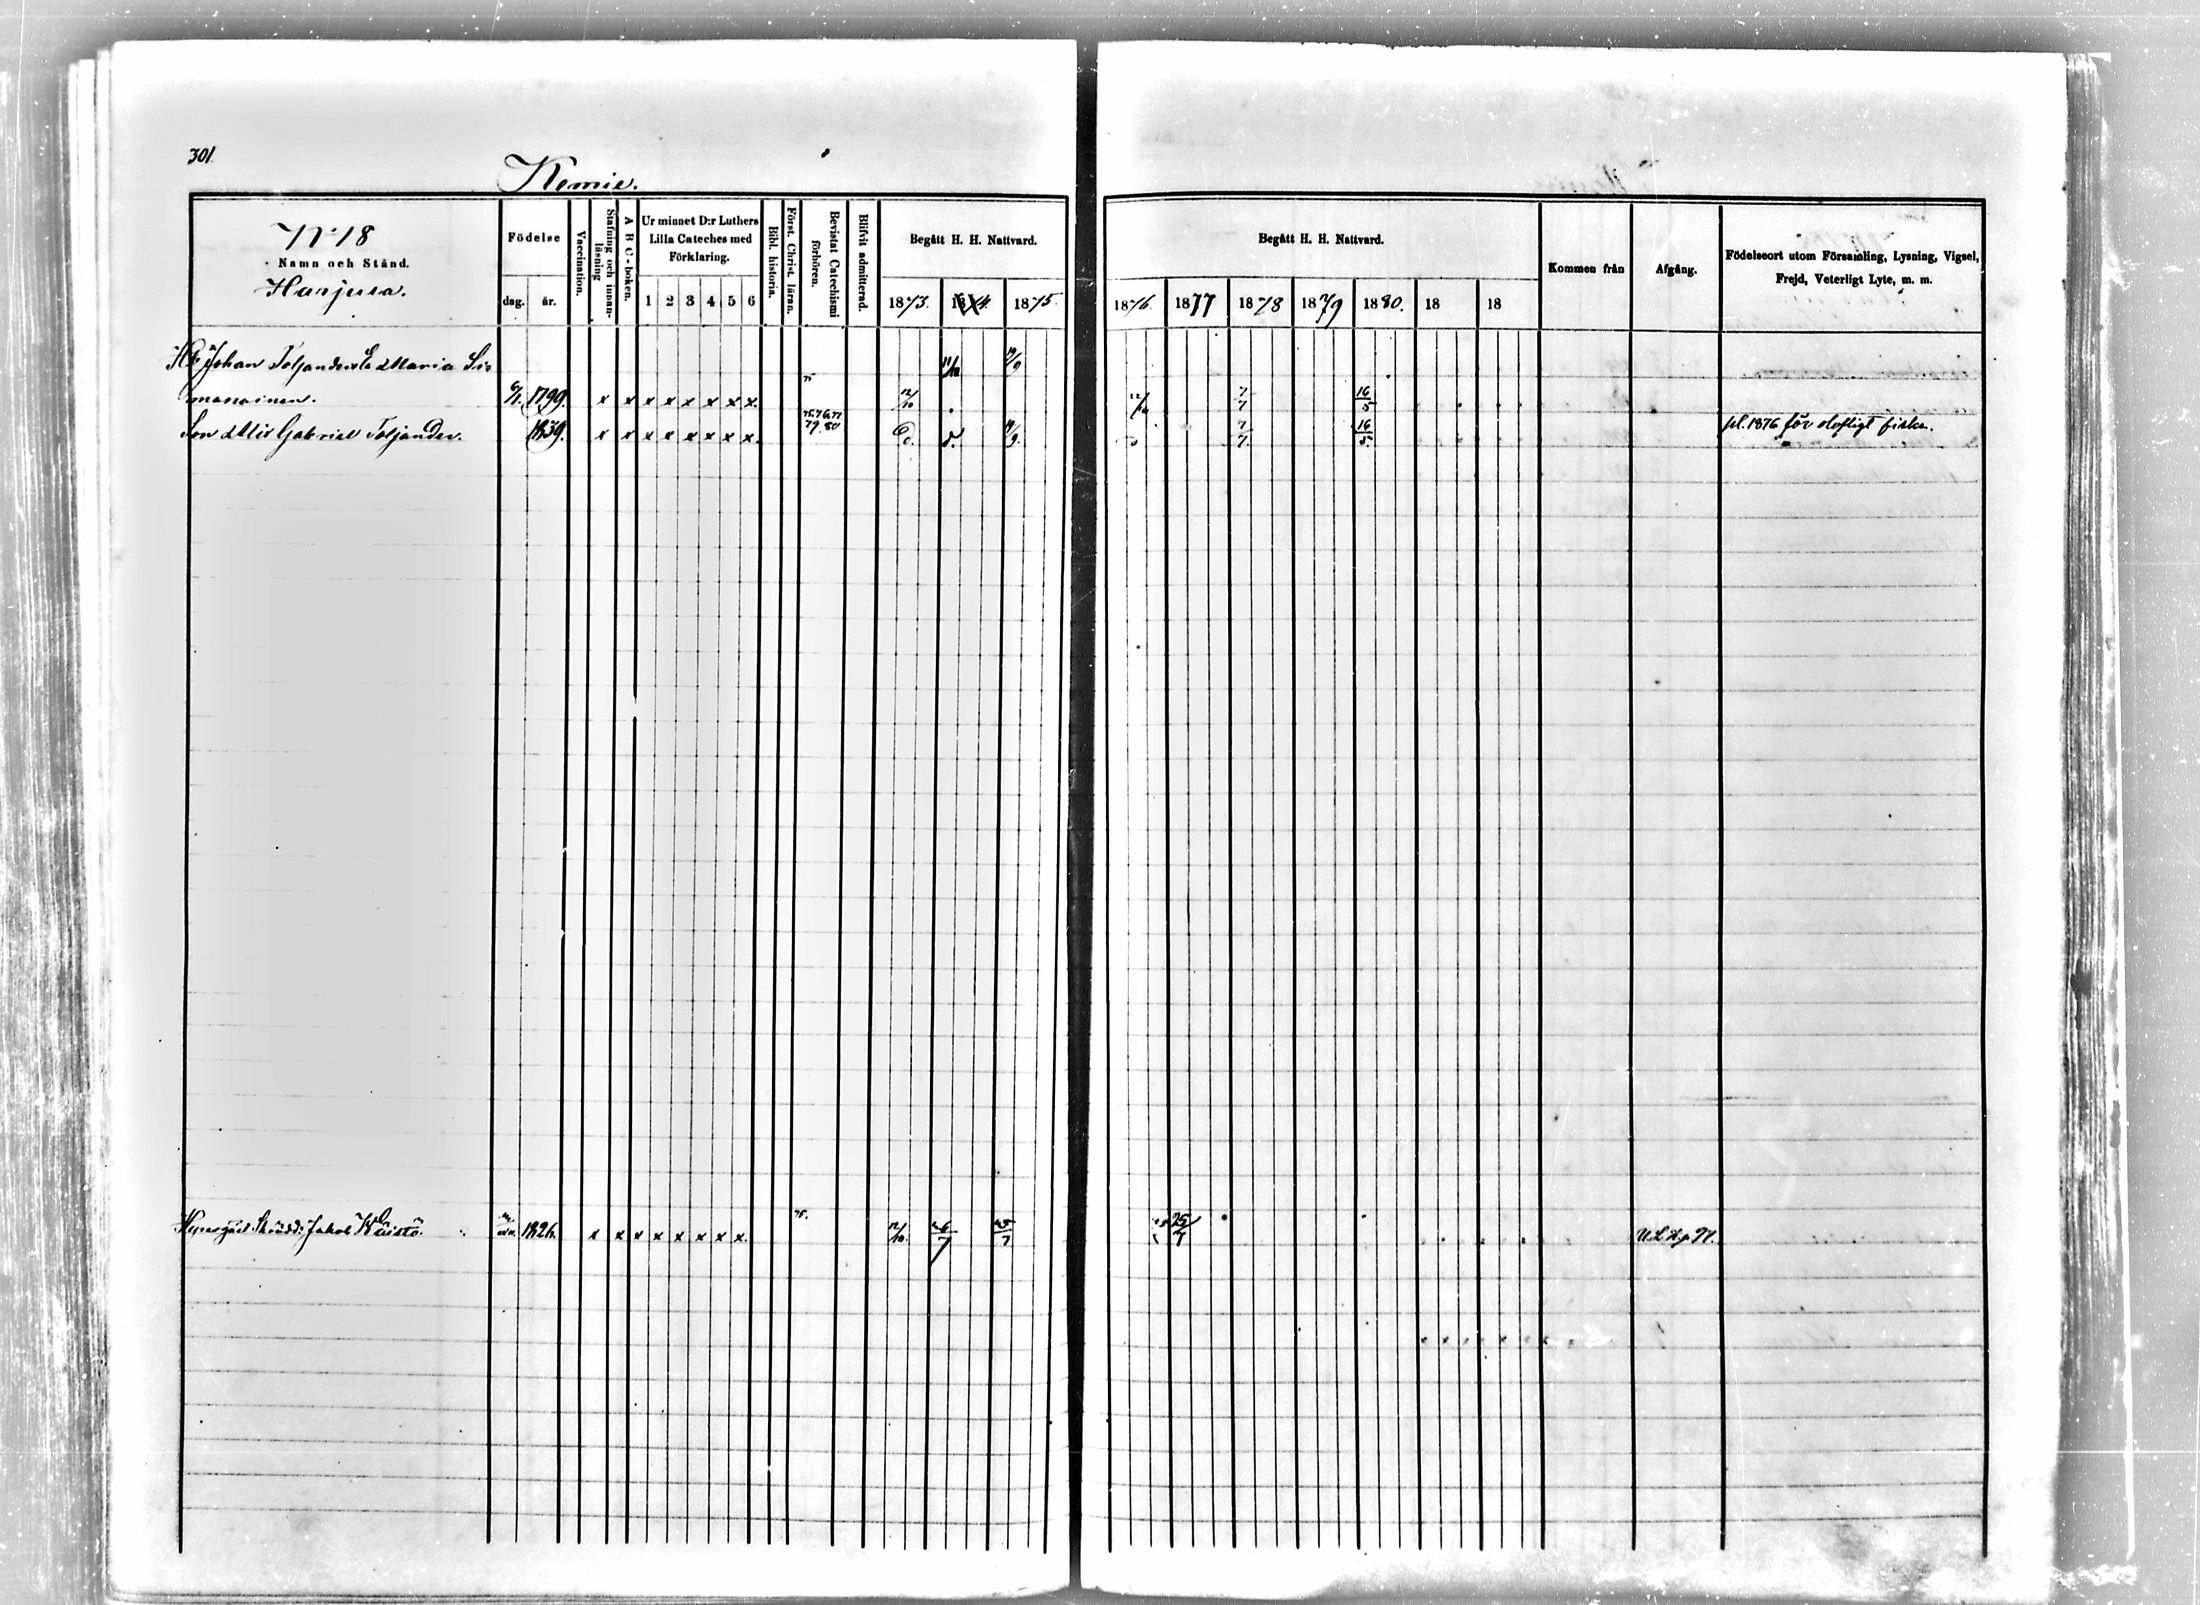 301.
Kemie.
No 18
Namn och Stånd.
Harjula.
Födelse
dag. år.
Vaccination.
Stafning och innanläsning
A B C-boken.
Ur minnet D:r Luthers
Lilla Cateches med
Förklaring.
1 2 3 4 5 6
Bibl. historia.
Först. Christ. läran.
Bevistat Catechismi förhören.
Blifvit admitterad.
Begått H. H. Nattvard.
1873. 1874. 1875.
Begått H. H. Nattvard.
1876. 1877 1878 1879 1880. 18 18
Kommen från
Afgång.
Födelseort utom Församling, Lysning, Vigsel,
Frejd, Veterligt Lyte, m. m.
Johan Toljanders Maria
1799. x x x x x x x x. 12/10 7/7 16/5
Son Gabriel Toljander. 1839. x x x x x x x x. 75 76 77 79. 80 7/7. 16/5. pl. 1876 för olofligt fiske.
Jakob 1826. x x x x x x x x. 75. 12/10. 26/7 25/7 25/7